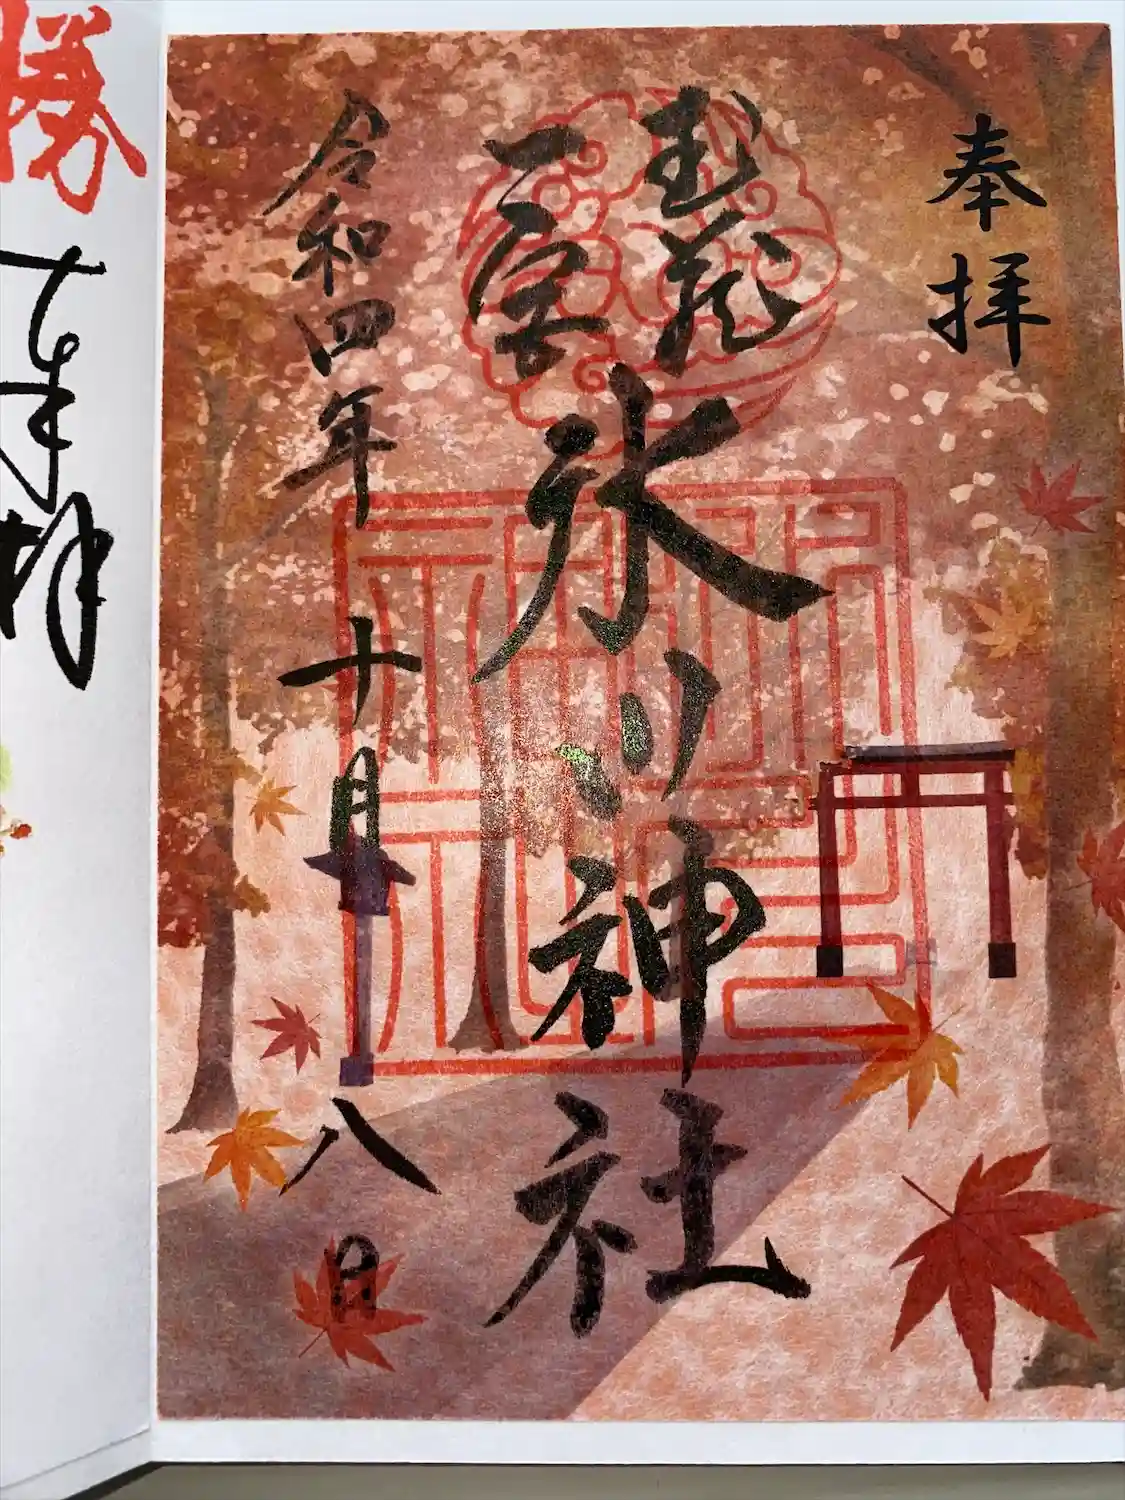 奉拝
武蔵
一宮
氷川神社
令和四年十月八日
勝
奉拝